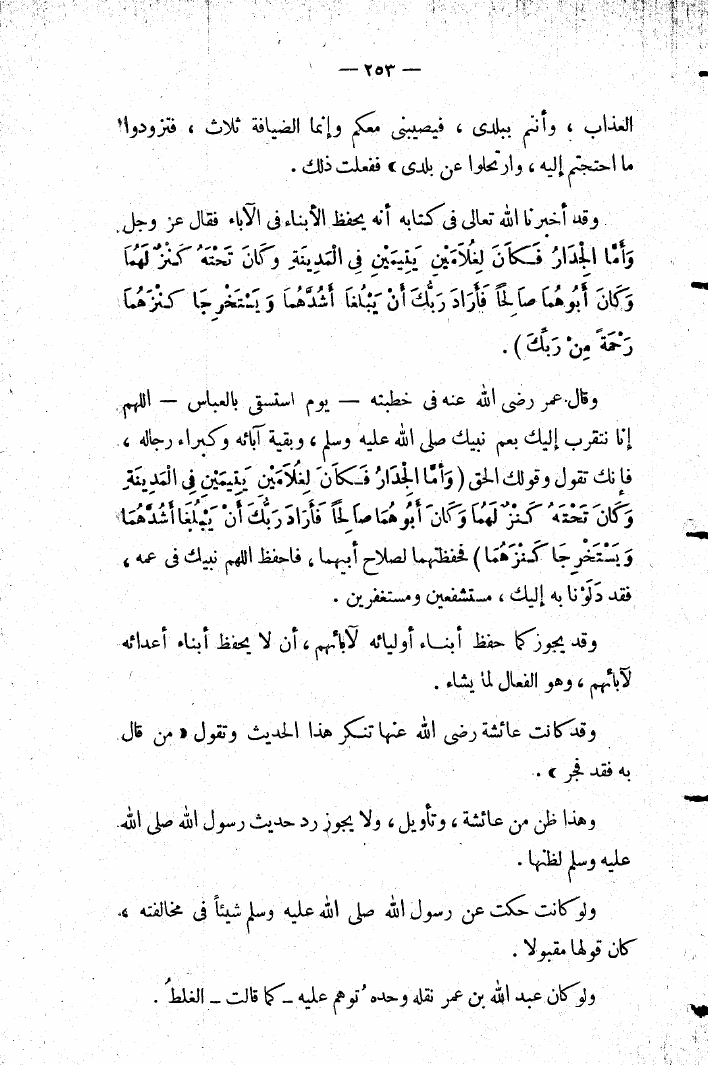 — ٢٥٣ —
العذاب ، وأنتم ببلدى ، فيصيبنى معكم وإنما الضيافة ثلاث ، فتزودوا
ما احتجتم إليه ، وارتحلوا عن بلدى » ففعلت ذلك .
وقد أخبرنا الله تعالى فى كتابه أنه يحفظ الأبناء فى الآباء فقال عز وجل
وَأَمَّا الْجِدَارُ فَكَانَ لِغُلَامَيْنِ يَتِيمَيْنِ فِى الْمَدِينَةِ وَكَانَ تَحْتَهُ كَنْزٌ لَهُمَا
وَكَانَ أَبُوهُمَا صَالِحًا فَأَرَادَ رَبُّكَ أَنْ يَبْلُغَا أَشُدَّهُمَا وَيَسْتَخْرِجَا كَنْزَهُمَا
رَحْمَةً مِنْ رَبِّكَ ) .
وقال عمر رضى الله عنه فى خطبته — يوم استسقى بالعباس — اللهم
إنا نتقرب إليك بعم نبيك صلى الله عليه وسلم ، وبقية آبائه وكبراء رجاله ،
فإنك تقول وقولك الحق ( وَأَمَّا الْجِدَارُ فَكَانَ لِغُلَامَيْنِ يَتِيمَيْنِ فِى الْمَدِينَةِ
وَكَانَ تَحْتَهُ كَنْزٌ لَهُمَا وَكَانَ أَبُوهُمَا صَالِحًا فَأَرَادَ رَبُّكَ أَنْ يَبْلُغَا أَشُدَّهُمَا
وَيَسْتَخْرِجَا كَنْزَهُمَا ) فحفظتهما لصلاح أبيهما ، فاحفظ اللهم نبيك فى عمه ،
فقد دَلَوْنا به إليك ، مستشفعين ومستغفرين .
وقد يجوز كما حفظ أبناء أوليائه لآبائهم ، أن لا يحفظ أبناء أعدائه
لآبائهم ، وهو الفعال لما يشاء .
وقد كانت عائشة رضى الله عنها تنكر هذا الحديث وتقول « من قال
به فقد فجر » .
وهذا ظن من عائشة ، وتأويل ، ولا يجوز رد حديث رسول الله صلى الله
عليه وسلم لظنها .
ولو كانت حكت عن رسول الله صلى الله عليه وسلم شيئاً فى مخالفته ،
كان قولها مقبولا .
ولو كان عبد الله بن عمر نقله وحده تُوهم عليه ـ كما قالت ـ الغلطُ .